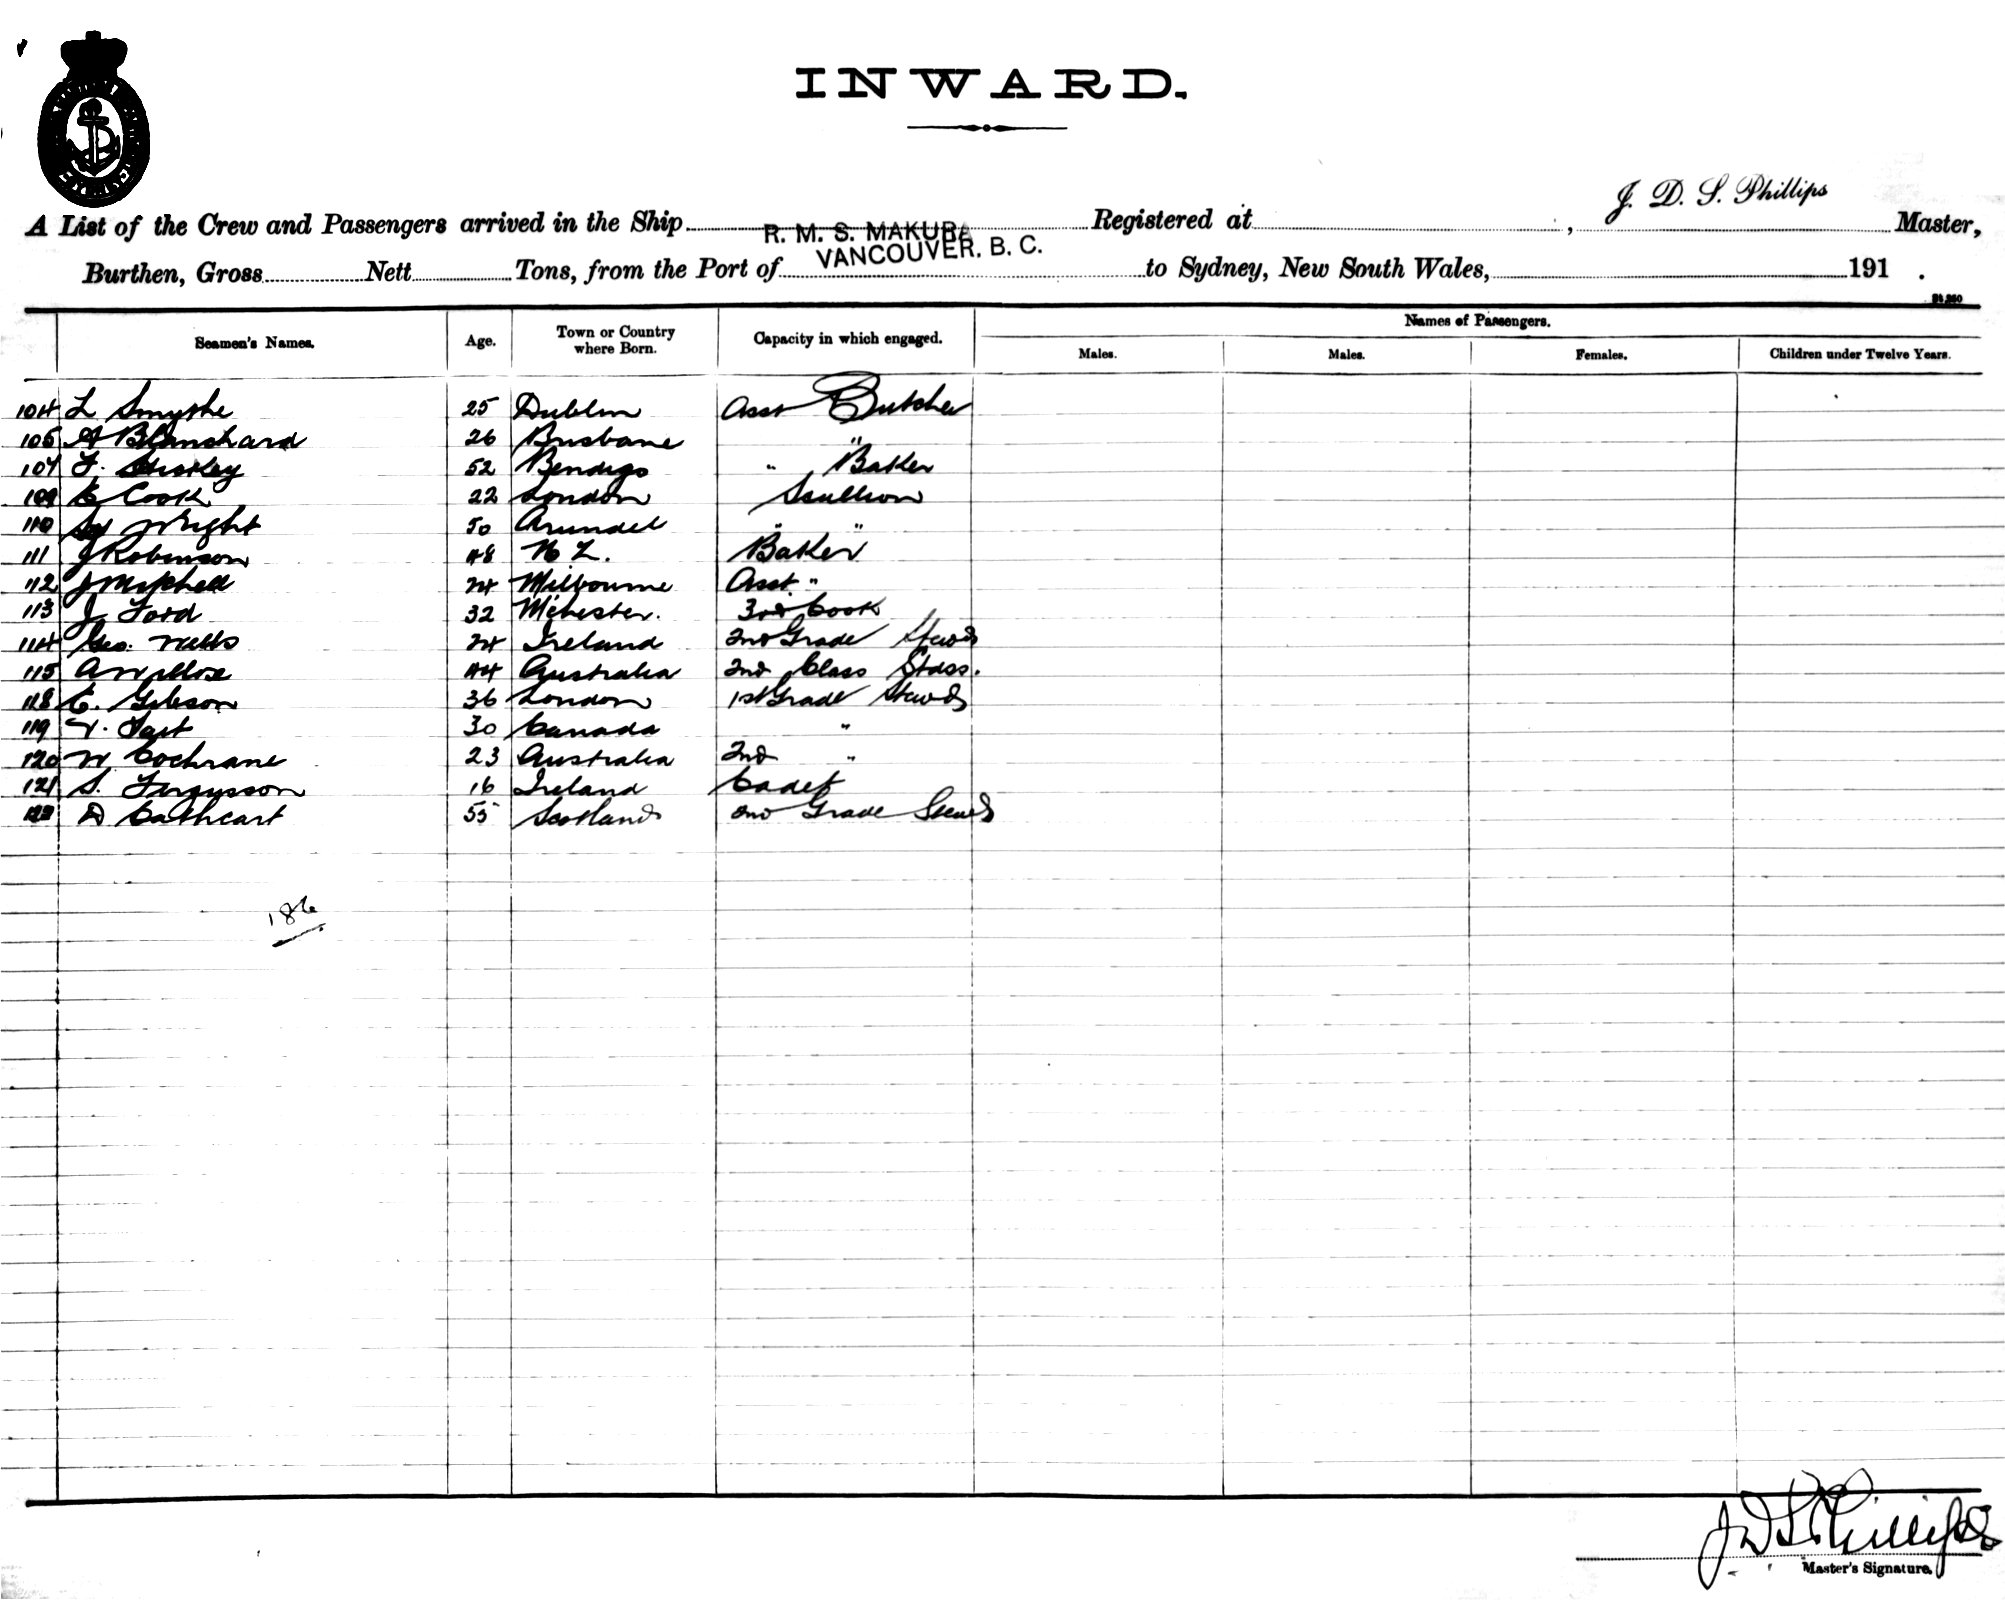 INWARD.
J. D. S. Phillips
A List of the Crew and Passengers arrived in the Ship R. M. S. MAKURA Registered at , Master,
VANCOUVER. B. C.
Burthen, Gross Nett Tons, from the Port of to Sydney, New South Wales, 191 .
Names of Passengers.
Seamen's Names. Age. Town or Country where Born. Capacity in which engaged. Males. Males. Females. Children under Twelve Years.
104 L Smythe 25 Dublin Asst Butcher
105 A Blanchard 26 Brisbane "
107 F. 52 Bendigo " Baker
109 C Cook 22 London Scullion
110 Wright 50 Arundel " "
111 J Robinson 48 N Z. Baker
112 J Mitchell 24 Melbourne Asst. "
113 J Ford 32 M'chester. 3rd Cook
114 Geo. 24 Ireland 2nd Grade Stewd
115 A 44 Australia 2nd Class Stdss.
118 C. Gibson 36 London 1st Grade Stewd
119 30 Canada "
120 W Cochrane 23 Australia 2nd "
121 S. Fergusson 16 Ireland Cadet
D Cathcart 55 Scotland 2nd Grade Stewd
186
J D S Phillips
Master's Signature.